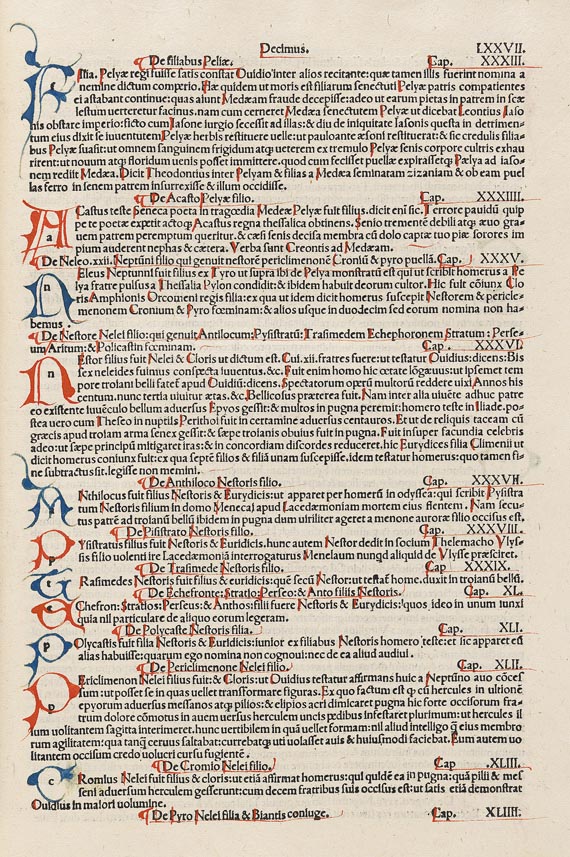 Decimus. LXXVII.
De filiabus Peliæ. Cap. XXXIII.
Filia. Pelyæ regi fuisse satis constat Ouidio inter alios recitante: quæ tamen illis fuerint nomina a
nemine dictum comperio. Hæ quidem ut moris est filiarum senectuti Pelyæ patris compatientes
ei astabant continue: quas aiunt Medæam fraude decepisse: adeo ut earum pietas in patrem in scæ
lestum uerteretur facinus. nam cum cerneret Medæa senectutem Pelyæ ut dicebat Leontius Iaso
nis obstare imperio: ficto cum Iasone iurgio secessit ad illas: & diu de iniquitate Iasonis questa in detrimen-
tum eius dixit se iuuentutem Pelyæ herbis restituere uelle: ut paulo ante æsoni restituerat: & sic credulis filia-
bus Pelyæ suasit: ut omnem sanguinem frigidum atque ueterem ex tremulo Pelyæ senis corpore cultris exhau
rirent: ut nouum atque floridum uenis posset immittere. quod cum fecisset puellæ expirassetque Pælya ad iaso-
nem rediit Medæa. Dicit Theodontius inter Pelyam & filias a Medæa seminatam zizaniam & ob eam puel
las ferro in senem patrem insurrexisse & illum occidisse.
De Acasto Pelyæ filio. Cap. XXXIIII.
ACastus teste Seneca poeta in tragœdia Medeæ Pelyæ fuit filius. dicit eni sic. Terrore pauidū quip
pe te poetæ expetit actoque Acastus regna thessalica obtinens. Senio tremente debili atque æuo gra-
uem patrem peremptum queritur. & cæsi senis decisa membra cū dolo captæ tuo piæ sorores im
pium auderent nephas & cætera. Verba sunt Creontis ad Medæam.
De Neleo .xxii. Neptūni filio qui genuit nestorē periclimonē Croniū & pyro puellā. Cap. XXXV.
NEleus Neptunni fuit filius ex Tyro ut supra ibi de Pelya monstratū est qui ut scribit homerus a Pe
lya fratre pulsus a Thessalia Pylon condidit: & ibidem habuit deorum cultor. Hic fuit cōiunx Clo
ris Amphionis Orcomeni regis filia: ex qua ut idem dicit homerus suscepit Nestorem & pericle-
menonem Cronium & Pyro fœminam: & alios usque in duodecim sed eorum nomina non ha-
bemus.
De Nestore Nelei filio: qui genuit Antilocum: Pysistratū: Trasimedem Echephoronem Stratum: Perse-
um Aritum: & Policastin fœminam. Cap. XXXVI.
NEstor filius fuit Nelei & Cloris ut dictum est. Cui .xii. fratres fuere: ut testatur Ouidius: dicens: Bis
sex neleides fuimus conspecta iuuentus. &c. Fuit enim homo hic œtate lōgæuus: ut ipsemet tem
pore troiani belli fateē apud Ouidiū: dicens. Spectatorum operū multorū reddere uixi Annos his
centum. nunc tertia uiuitur ætas. &c. Bellicosus præterea fuit. Nam inter alia uiuēte adhuc patre
eo existente iuuēculo bellum aduersus Epyos gessit: & multos in pugna peremit: homero teste in Iliade. pos-
tea uero cum Theseo in nuptiis Perithoi fuit in certamine aduersus centauros. Et ut de reliquis taceam cū
græcis apud troiam arma senex gessit: & sæpe troianis obuius fuit in pugna. Fuit insuper facundia celebris
adeo: ut sæpe principū mitigaret iras: & in concordiam discordes reduceret. hic Eurydices filia Climenii ut
dicit homerus coniunx fuit: ex qua septē filios & filiā unam suscepisse. idem testatur homerus: quo tamen fi-
ne subtractus sit. legisse non memini.
De Anthiloco Nestoris filio. Cap. XXXVII.
ANthilocus fuit filius Nestoris & Eurydicis: ut apparet per homerū in odyssea: qui scribit Pysistra
tum Nestoris filium in domo Menecaj apud Lacedæmoniam mortem eius flentem. Nam secu-
tus patrē ad troianū beliū ibidem in pugna dum uiriliter ageret a menone auroræ filio occisus est.
De Pisistrato Nestoris filio. Cap. XXXVIII.
PYsistratus filius fuit Nestoris & Euridicis. hunc autem Nestor dedit in socium Thelemacho Vlys-
sis filio uolenti ire Lacedæmoniā interrogaturus Menelaum nunqd aliquid de Vlysse præsciret.
De Trasimede Nestoris filio. Cap. XXXIX.
TRasimedes Nestoris fuit filius & euridicis: quē secū Nestor: ut testat homē. duxit in troianū bellū.
De Echefronte: Stratio: Perseo: & Anto filiis Nestoris. Cap. XL.
EChefron: Stratios: Perseus: & Anthos: filii fuere Nestoris & Eurydicis: quos ideo in unum iunxi
quia nil particulare de aliquo eorum legeram.
De Polycaste Nestoris filia. Cap. XLI.
POlycastis fuit filia Nestoris & Euridicis: iunior ex filiabus Nestoris homero teste: et sic apparet eū
alias habuisse: quarum ego nomina non cognoui: nec de ea aliud audiui.
De Periclimenone Nelei filio. Cap. XLII.
PEriclimenon Nelei filius fuit: & Cloris: ut Ouidius testatur affirmans huic a Neptūno auo cōces
sum: ut posset se in quas uellet transformare figuras. Ex quo factum est que cū hercules in ultionē
epyorum aduersus messanos atque pilios: & elipios acri dimicaret pugna hic forte occisorum fra-
trum dolore cōmotus in auem uersus herculem uncis pedibus infestaret plurimum: ut hercules il
lum uolitantem sagitta interimeret. hunc uertibilem in quā uellet formam: nil aliud intelligo que eius membro
rum agilitatem: qua tanque ceruus saltabat: currebatque uti uolasset auis & huiusmodi faciebat. Eum autem uo
litantem occisum credo uolucri cursu fugientē.
De Cromio Nelei filio. Cap. XLIII.
CRomius Nelei fuit filius & cloris: ut etiā affirmat homerus: qui quidē ea in pugna: quā pilii & mes
seni aduersum herculem gesserunt: cum decem fratribus suis occisus est: ut satis etiā demonstrat
Ouidius in maiori uolumine.
De Pyro Nelei filia & Biantis coniuge. Cap. XLIIII.